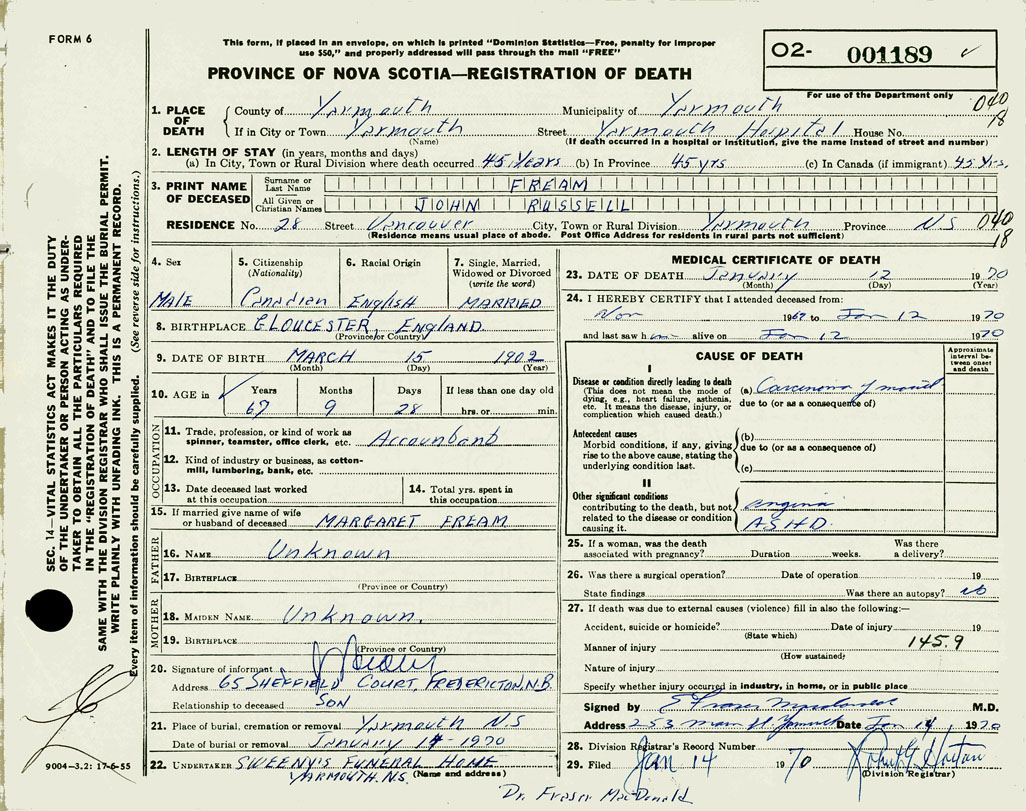 FORM 6
This form, if placed in an envelope, on which is printed "Dominion Statistics—Free, penalty for improper
use $50," and properly addressed will pass through the mail "FREE"
PROVINCE OF NOVA SCOTIA—REGISTRATION OF DEATH
O2- 001189 ✓
For use of the Department only
040
18
1. PLACE OF DEATH
County of Yarmouth Municipality of Yarmouth
If in City or Town Yarmouth Street Yarmouth Hospital House No.
(Name) (If death occurred in a hospital or institution, give the name instead of street and number)
2. LENGTH OF STAY (in years, months and days)
(a) In City, Town or Rural Division where death occurred 45 Years (b) In Province 45 yrs (c) In Canada (if immigrant) 45 Yrs.
3. PRINT NAME OF DECEASED
Surname or Last Name FREAM
All Given or Christian Names JOHN RUSSELL
RESIDENCE No. 28 Street Vancouver City, Town or Rural Division Yarmouth Province N S
040
18
(Residence means usual place of abode. Post Office Address for residents in rural parts not sufficient)
4. Sex
MALE
5. Citizenship
(Nationality)
Canadian
6. Racial Origin
English
7. Single, Married,
Widowed or Divorced
(write the word)
MARRIED
8. BIRTHPLACE GLOUCESTER, ENGLAND
(Province or Country)
9. DATE OF BIRTH MARCH 15 1902
(Month) (Day) (Year)
10. AGE in ✓ Years Months Days If less than one day old
67 9 28 hrs. or min.
OCCUPATION
11. Trade, profession, or kind of work as
spinner, teamster, office clerk, etc. Accountant
12. Kind of industry or business, as cotton-
mill, lumbering, bank, etc.
13. Date deceased last worked
at this occupation
14. Total yrs. spent in
this occupation
15. If married give name of wife
or husband of deceased MARGARET FREAM
FATHER
16. NAME Unknown
17. BIRTHPLACE
(Province or Country)
MOTHER
18. MAIDEN NAME Unknown.
19. BIRTHPLACE
(Province or Country)
20. Signature of informant
Address 65 SHEFFIELD COURT, FREDERICTON, N.B.
Relationship to deceased SON
21. Place of burial, cremation or removal Yarmouth N.S
Date of burial or removal January 14 - 1970
22. UNDERTAKER SWEENY'S FUNERAL HOME
YARMOUTH. N.S. (Name and address)
MEDICAL CERTIFICATE OF DEATH
23. DATE OF DEATH January 12 1970
(Month) (Day) (Year)
24. I HEREBY CERTIFY that I attended deceased from:
Nov 1969 to Jan 12 1970
and last saw him alive on Jan 12 1970
CAUSE OF DEATH
Approximate
interval be-
tween onset
and death
I
Disease or condition directly leading to death
(This does not mean the mode of
dying, e.g., heart failure, asthenia,
etc. It means the disease, injury, or
complication which caused death.)
(a) Carcinoma of
due to (or as a consequence of)
Antecedent causes
Morbid conditions, if any, giving
rise to the above cause, stating the
underlying condition last.
(b)
due to (or as a consequence of)
(c)
II
Other significant conditions
contributing to the death, but not
related to the disease or condition
causing it.
angina
ASHD.
25. If a woman, was the death Was there
associated with pregnancy? Duration weeks. a delivery?
26. Was there a surgical operation? Date of operation 19
State findings Was there an autopsy? no
27. If death was due to external causes (violence) fill in also the following:—
Accident, suicide or homicide? Date of injury 19
(State which)
Manner of injury 145.9
(How sustained)
Nature of injury
Specify whether injury occurred in industry, in home, or in public place
Signed by E Fraser Macdonald M.D.
Address 253 Main St. Yarmouth Date Jan 14, 1970
28. Division Registrar's Record Number
29. Filed Jan 14 1970 Robert G. Horton
(Division Registrar)
Dr. Fraser MacDonald
SEC. 14—VITAL STATISTICS ACT MAKES IT THE DUTY
OF THE UNDERTAKER OR PERSON ACTING AS UNDER-
TAKER TO OBTAIN ALL THE PARTICULARS REQUIRED
IN THE "REGISTRATION OF DEATH" AND TO FILE THE
SAME WITH THE DIVISION REGISTRAR WHO SHALL ISSUE THE BURIAL PERMIT.
WRITE PLAINLY WITH UNFADING INK. THIS IS A PERMANENT RECORD.
Every item of information should be carefully supplied. (See reverse side for instructions.)
9004-3.2: 17-6-55